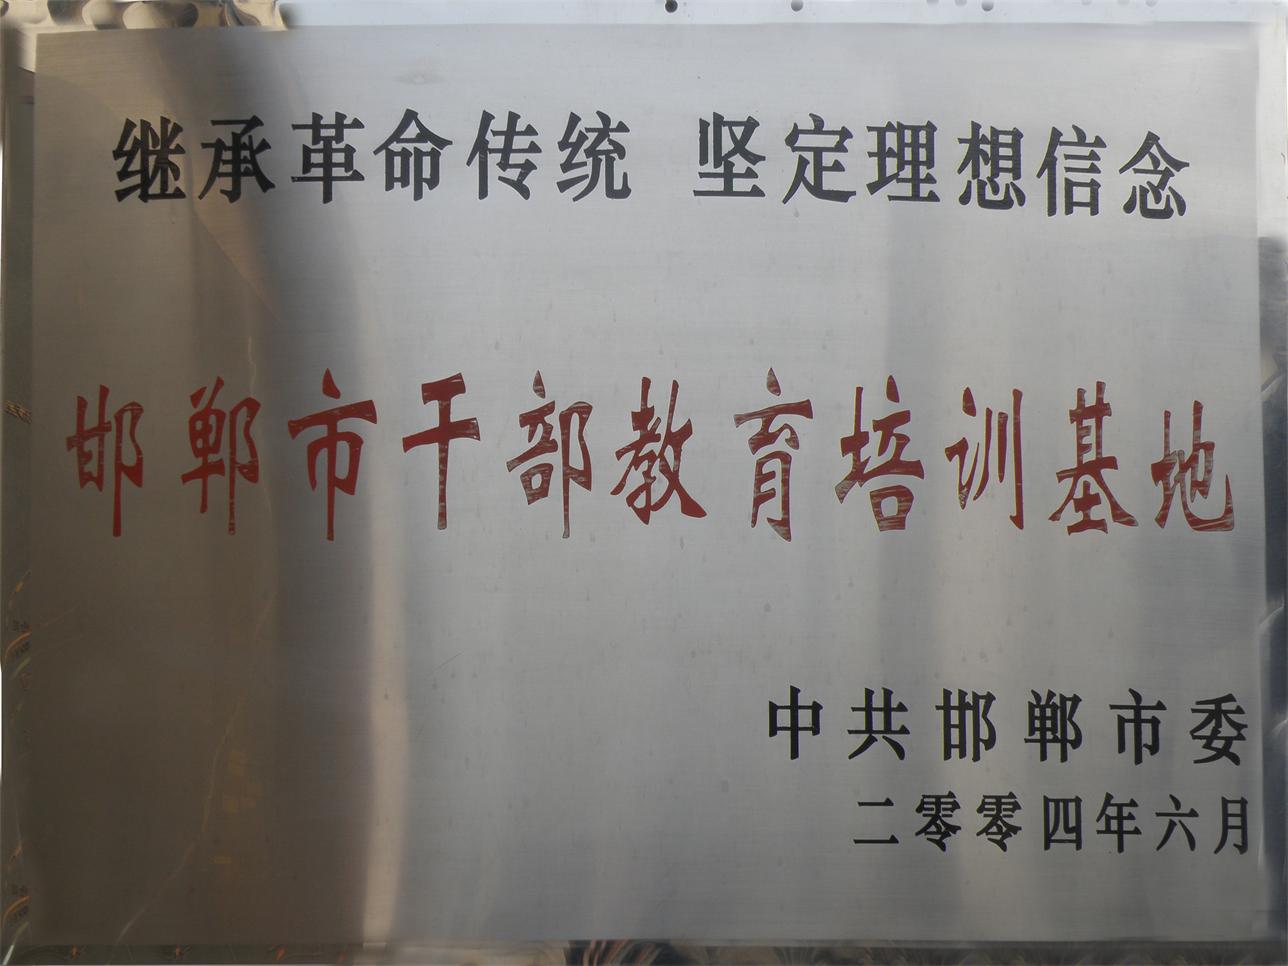 继承革命传统 坚定理想信念
邯郸市干部教育培训基地
中共邯郸市委
二零零四年六月